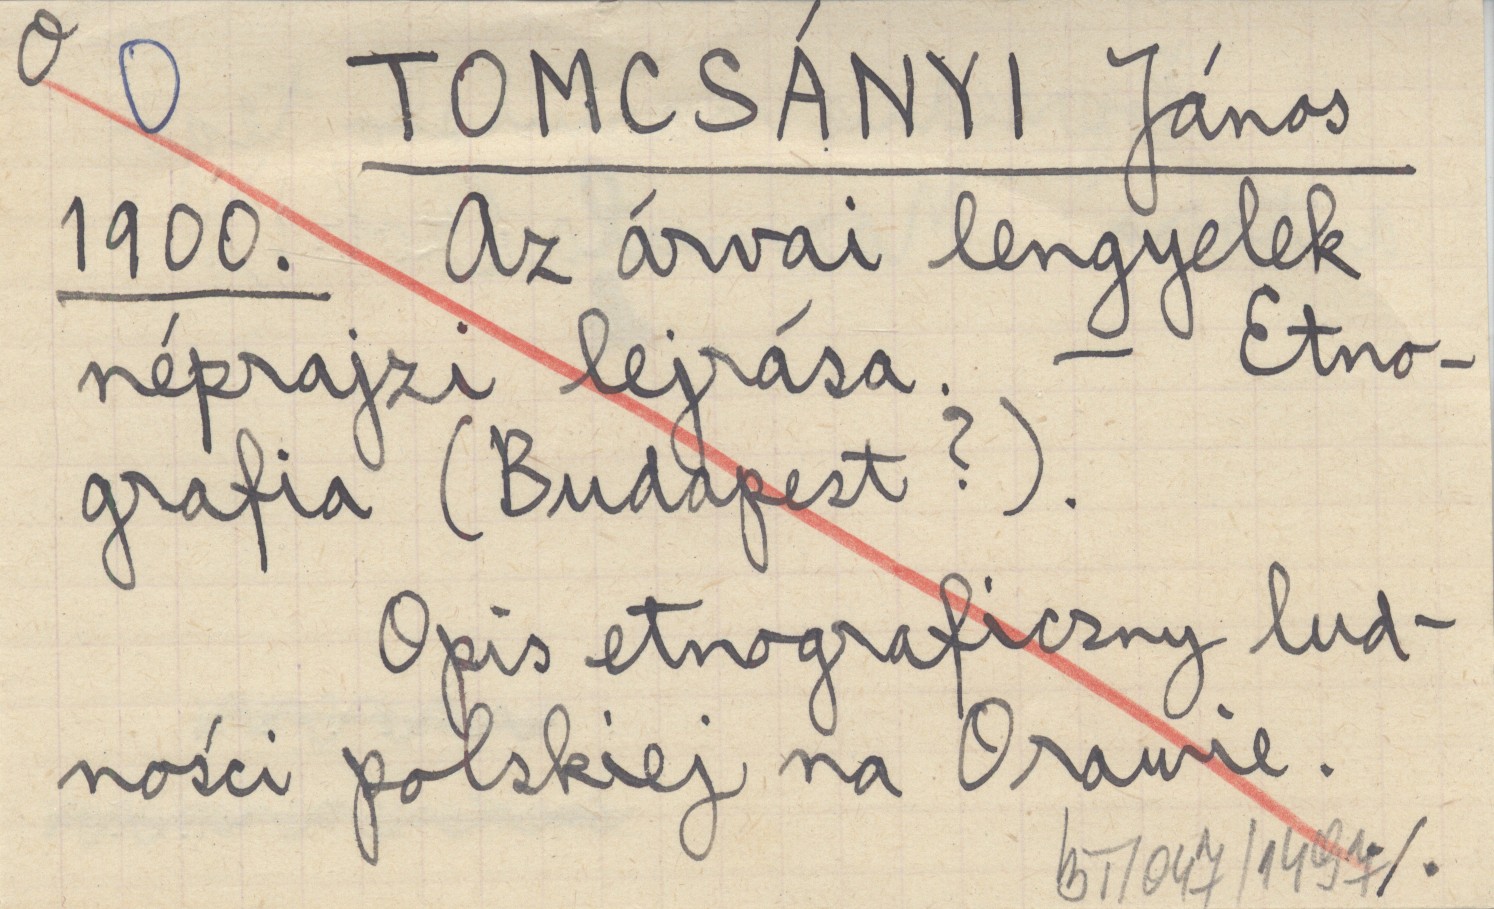 O O TOMCSÁNYI János
1900. Az árvai lengyelek
néprajzi lejrása. — Etno-
grafia (Budapest?).
Opis etnograficzny lud-
ności polskiej na Orawie.
BT/047/1497/.